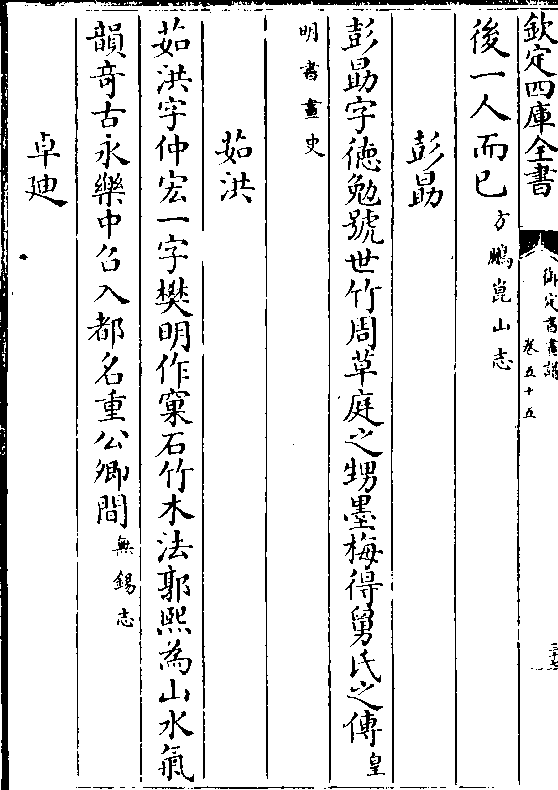 欽定四庫全書
御定書畫譜
卷五十五
後一人而已方鵬崑山志
彭勗
彭勗字德勉號世竹周草庭之甥墨梅得舅氏之傳皇
明書畫史
茹洪
茹洪字仲宏一字樊明作窠石竹木法郭熙為山水氣
韻奇古永樂中召入都名重公卿間無錫志
卓迪